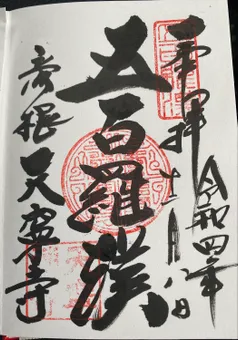 奉拝
令和四年
十一月八日
五百羅漢
彦根天寧寺